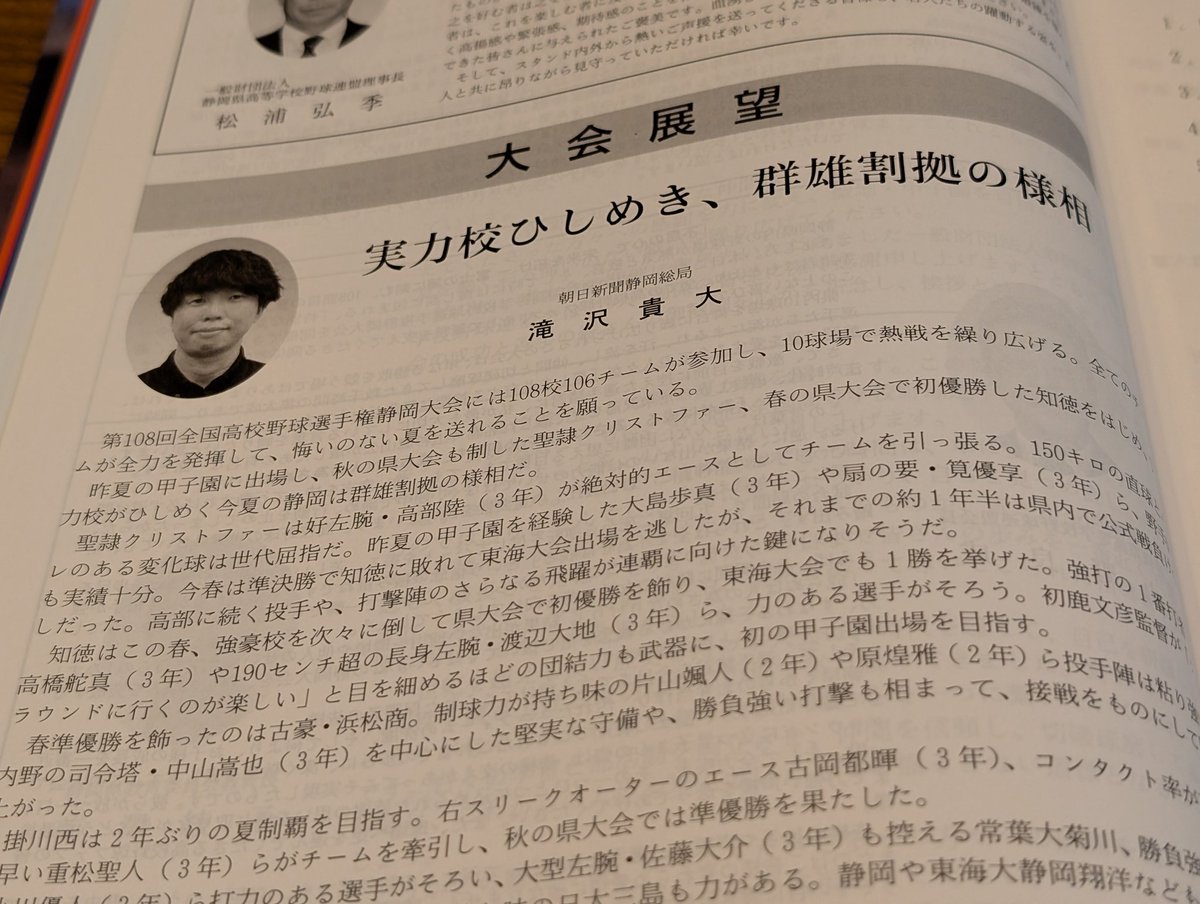 者は、これを楽しむ者に
く高揚感や緊張感、期待感のご褒美です。
できた皆さんに与えられたご褒美です。
そして、スタンド内外から熱いご声援を送ってくださる皆様も、
人と共に昂りながら見守っていただければ幸いです。
一般財団法人
静岡県高等学校野球連盟理事長
松浦弘季
大会展望
実力校ひしめき、群雄割拠の様相
朝日新聞静岡総局
滝沢貴大
第108回全国高校野球選手権静岡大会には108校106チームが参加し、10球場で熱戦を繰り広げる。全ての
ムが全力を発揮して、悔いのない夏を送れることを願っている。
昨夏の甲子園に出場し、秋の県大会も制した聖隷クリストファー、春の県大会で初優勝した知徳をはじめ、
力校がひしめく今夏の静岡は群雄割拠の様相だ。
聖隷クリストファーは好左腕・高部陸（3年）が絶対的エースとしてチームを引っ張る。150キロの直球と
レのある変化球は世代屈指だ。昨夏の甲子園を経験した大島歩真（3年）や扇の要・筧優享（3年）ら、野手
も実績十分。今春は準決勝で知徳に敗れて東海大会出場を逃したが、それまでの約1年半は県内で公式戦負け
しだった。高部に続く投手や、打撃陣のさらなる飛躍が連覇に向けた鍵になりそうだ。
知徳はこの春、強豪校を次々に倒して県大会で初優勝を飾り、東海大会でも1勝を挙げた。強打の1番打
高橋舵真（3年）や190センチ超の長身左腕・渡辺大地（3年）ら、力のある選手がそろう。初鹿文彦監督が
ラウンドに行くのが楽しい」と目を細めるほどの団結力も武器に、初の甲子園出場を目指す。
春準優勝を飾ったのは古豪・浜松商。制球力が持ち味の片山颯人（2年）や原煌雅（2年）ら投手陣は粘り強
内野の司令塔・中山嵩也（3年）を中心にした堅実な守備や、勝負強い打撃も相まって、接戦をものにして
上がった。
掛川西は2年ぶりの夏制覇を目指す。右スリークオーターのエース古岡都暉（3年）、コンタクト率が
早い重松聖人（3年）らがチームを牽引し、秋の県大会では準優勝を果たした。
優人（3年）ら打力のある選手がそろい、大型左腕・佐藤大介（3年）も控える常葉大菊川、勝負強
の日大三島も力がある。静岡や東海大静岡翔洋なども